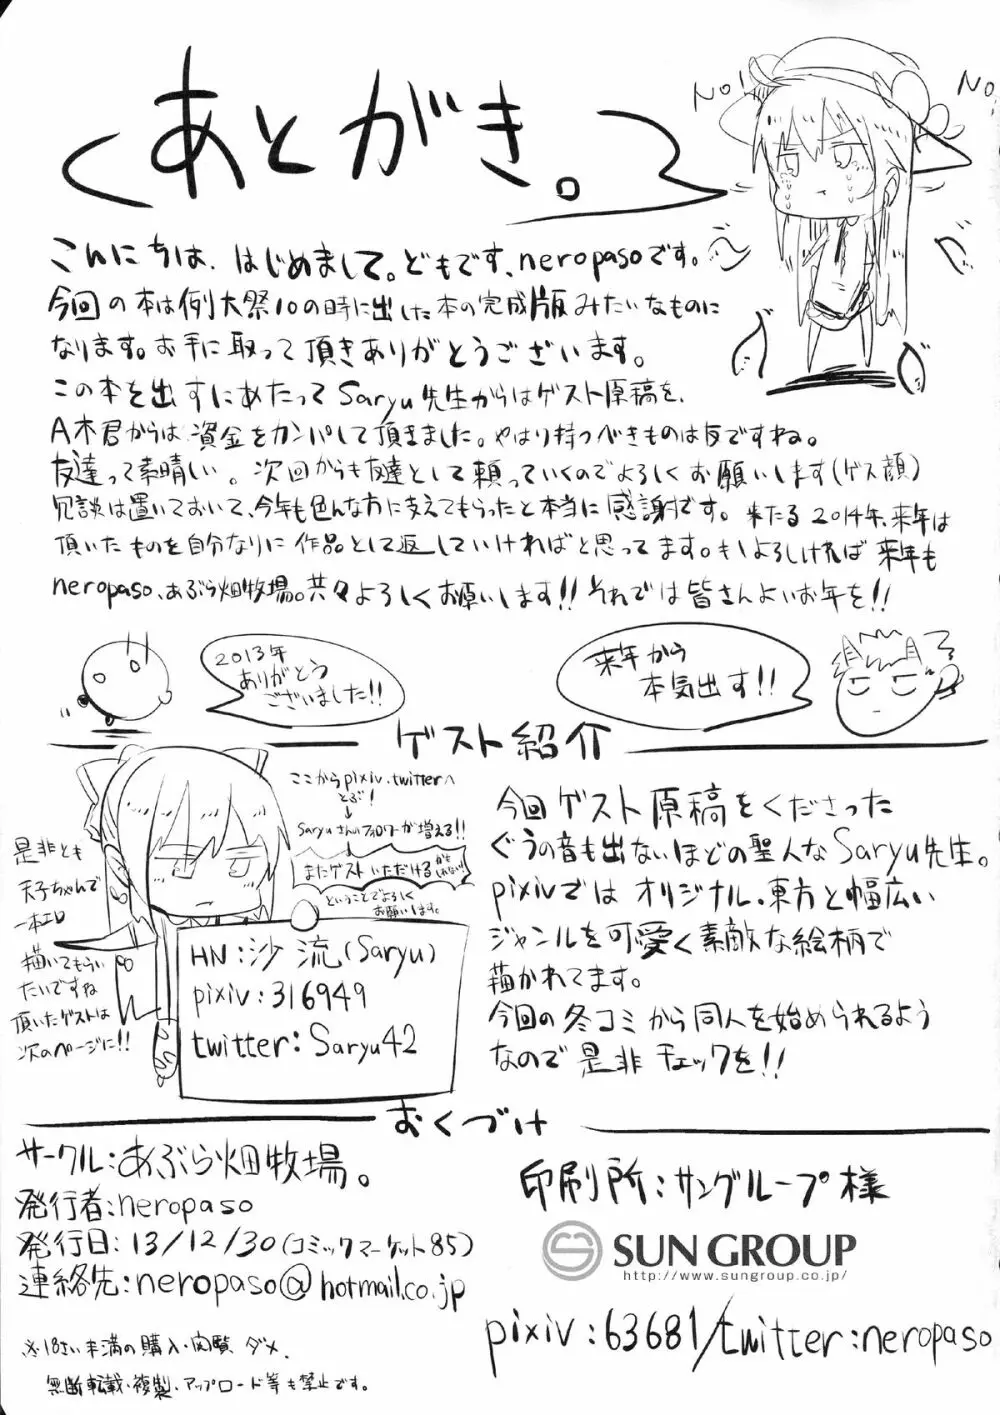 あとがき。
No!
No!
こんにちは、はじめまして。どもです、neropasoです。
今回の本は例大祭10の時に出した本の完成版みたいなものに
なります。お手に取って頂きありがとうございます。
この本を出すにあたってSaryu先生からはゲスト原稿を、
A木君からは資金をカンパして頂きました。やはり持つべきものは友ですね。
友達って素晴しい。次回からも友達として頼っていくのでよろしくお願いします(ゲス顔)
冗談は置いておいて、今年も色んな方に支えてもらったと本当に感謝です。来たる2014年、来年は
頂いたものを自分なりに作品として返していければと思ってます。もしよろしければ来年も
neropaso、あぶら畑牧場。共々よろしくお願いします!!それでは皆さんよいお年を!!
2013年
ありがとう
ございました!!
来年から
本気出す!!
ゲスト紹介
ここからpixiv、twitterへ
とぶ!
↓
Saryuさんのフォロワーが増える!!
またゲストいただけるかもしれない!
ということでよろしく
お願いします。
是非とも
天子ちゃんで
一本エロ
描いてもらい
たいですね
頂いたゲストは
次のページに!!
HN:沙流(Saryu)
pixiv:316949
twitter:Saryu42
今回ゲスト原稿をくださった
ぐうの音も出ないほどの聖人なSaryu先生。
pixivではオリジナル、東方と幅広い
ジャンルを可愛く素敵な絵柄で
描かれてます。
今回の冬コミから同人を始められるよう
なので是非チェックを!!
おくづけ
サークル:あぶら畑牧場。
発行者:neropaso
発行日:13/12/30(コミックマーケット85)
連絡先:neropaso@hotmail.co.jp
※18さい未満の購入・閲覧ダメ、
無断転載・複製・アップロード等も禁止です。
印刷所:サングループ様
SUN GROUP
http://www.sungroup.co.jp/
pixiv:63681/twitter:neropaso